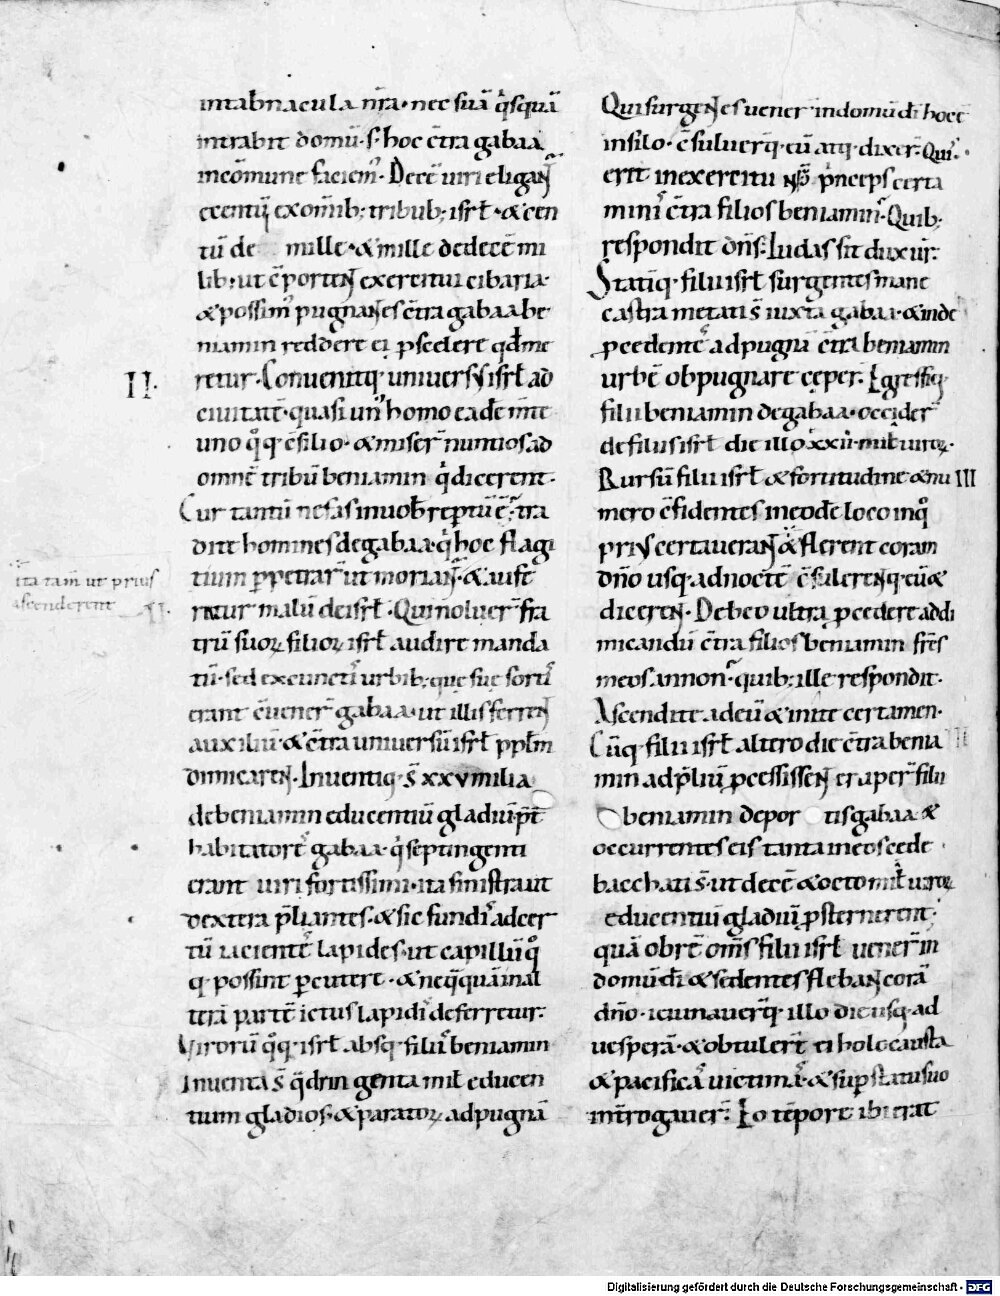 intab̄nacula nr̄a · nec suā qͥsquā
intrabit domū · s; hoc c̄tra gabaa
in cōmune faciem᾽ · Decē uiri eligant̄
e centū ex om̄ib; tribub; isrł · & cen
tū de mille · & mille de decē mi
lib; ut cōporten̄t exercitui cibaria ·
& possim᾽ pugnantes c̄tra gabaa be
niamin reddere ei p scelere qd̄ me
retur · Conuenitq; uniuersus isrł ad
ciuitatē · quasi un᾽ homo eadē m̄te
uno qͦq; c̄silio · & miser̄ nuntios ad
omnē tribū beniamin qͥ dicerent ·
Cur tantū nefas in uob̄ reptū ē · tra
dite homines de gabaa · qͥ hoc flagi
tium ppetrar̄ ut moriant̄ · & aufe
ratur malū de isrł · Qui noluer̄ fra
trū suoꝝ filioꝝ isrł audire manda
tū · sed ex cunctͥ urbib; que sue sortͥ
erant c̄uener̄ gabaa · ut illis ferrent
auxiliū · & c̄tra uniuersū isrł ppłm
dimicarent · Inuentiq; s̄ xxv milia
de beniamin educentiū gladiū · p̄t
habitatorē gabaa · qͥ septingenti
erant uiri fortissimi · ita sinistra ut
dextera p̄liantes · & sic fundͥ ad cer
tū iacientē lapides · ut capillū qͦ
q; possint pcutere · & neq̄quā in al
terā partē ictus lapidͥ deferretur ·
Virorū qͦq; isrł absq; filiͥ beniamin
inuenta s̄ q̄dringenta mił educen
tium gladios · & paratoꝝ ad pugnā
II.
ita tam̄ ut prius
ascenderent
Qui surgentes uener̄ in domū dī hoc ē
in silo · c̄suluerq; dm̄ atq; dixer̄ · Quͥ
erit in exercitu nr̄o p̄nceps certa
minͥ c̄tra filios beniamin · Quib;
respondit dn̄s · Iudas sit dux ur̄ ·
Statiq; filii isrł surgentes mane
castra metati s̄ iuxta gabaa · & inde
pcedentē ad pugnā c̄tra beniamin
urbē obpugnare ceper · Egressiq;
filii beniamin de gabaa · occider̄
de filiis isrł die illo xxii · mił uiroꝝ ·
Rursū filii isrł & fortitudine & nu
mero c̄fidentes in eodē loco in qͦ
prius certauerant & flerent coram
dn̄o usq; ad noctē c̄sulerentq; eū &
dicerent · Debeo ultra pcedere ad di
micandū c̄tra filios beniamin frēs
meos an non · quib; ille respondit ·
Ascendite ad eū & inite certamen ·
Cūq; filii isrł altero die c̄tra benia
min ad p̄liū pcessissent eruper̄ filii
beniamin de portis gabaa &
occurrentes eis tanta in eos cede
bacchati s̄ · ut decē & octo mił uiroꝝ
educentiū gladiū psternerent ·
quā obrē om̄s filii isrł uener̄ in
domū dī & sedentes flebant corā
dn̄o · ieiunauerq; illo die usq; ad
uesperā · & obtuler̄ ei holocausta
& pacificā uictimā · & sup statu suo
int̄rogauer̄ · Eo tēpore ibi erat
III
Digitalisierung gefördert durch die Deutsche Forschungsgemeinschaft - DFG